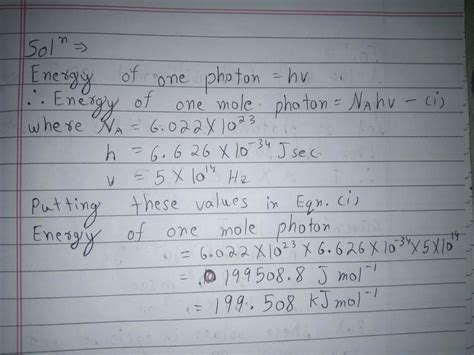 Solⁿ ⇒
Energy of one photon = hv
∴ Energy of one mole photon = N_A hv - (i)
where N_A = 6.022 X 10²³
h = 6.626 X 10⁻³⁴ J sec
v = 5 X 10¹⁴ Hz
Putting these values in Eqn. (i)
Energy of one mole photon
= 6.022 X 10²³ X 6.626 X 10⁻³⁴ X 5 X 10¹⁴
= 199508.8 J mol⁻¹
= 199.508 kJ mol⁻¹